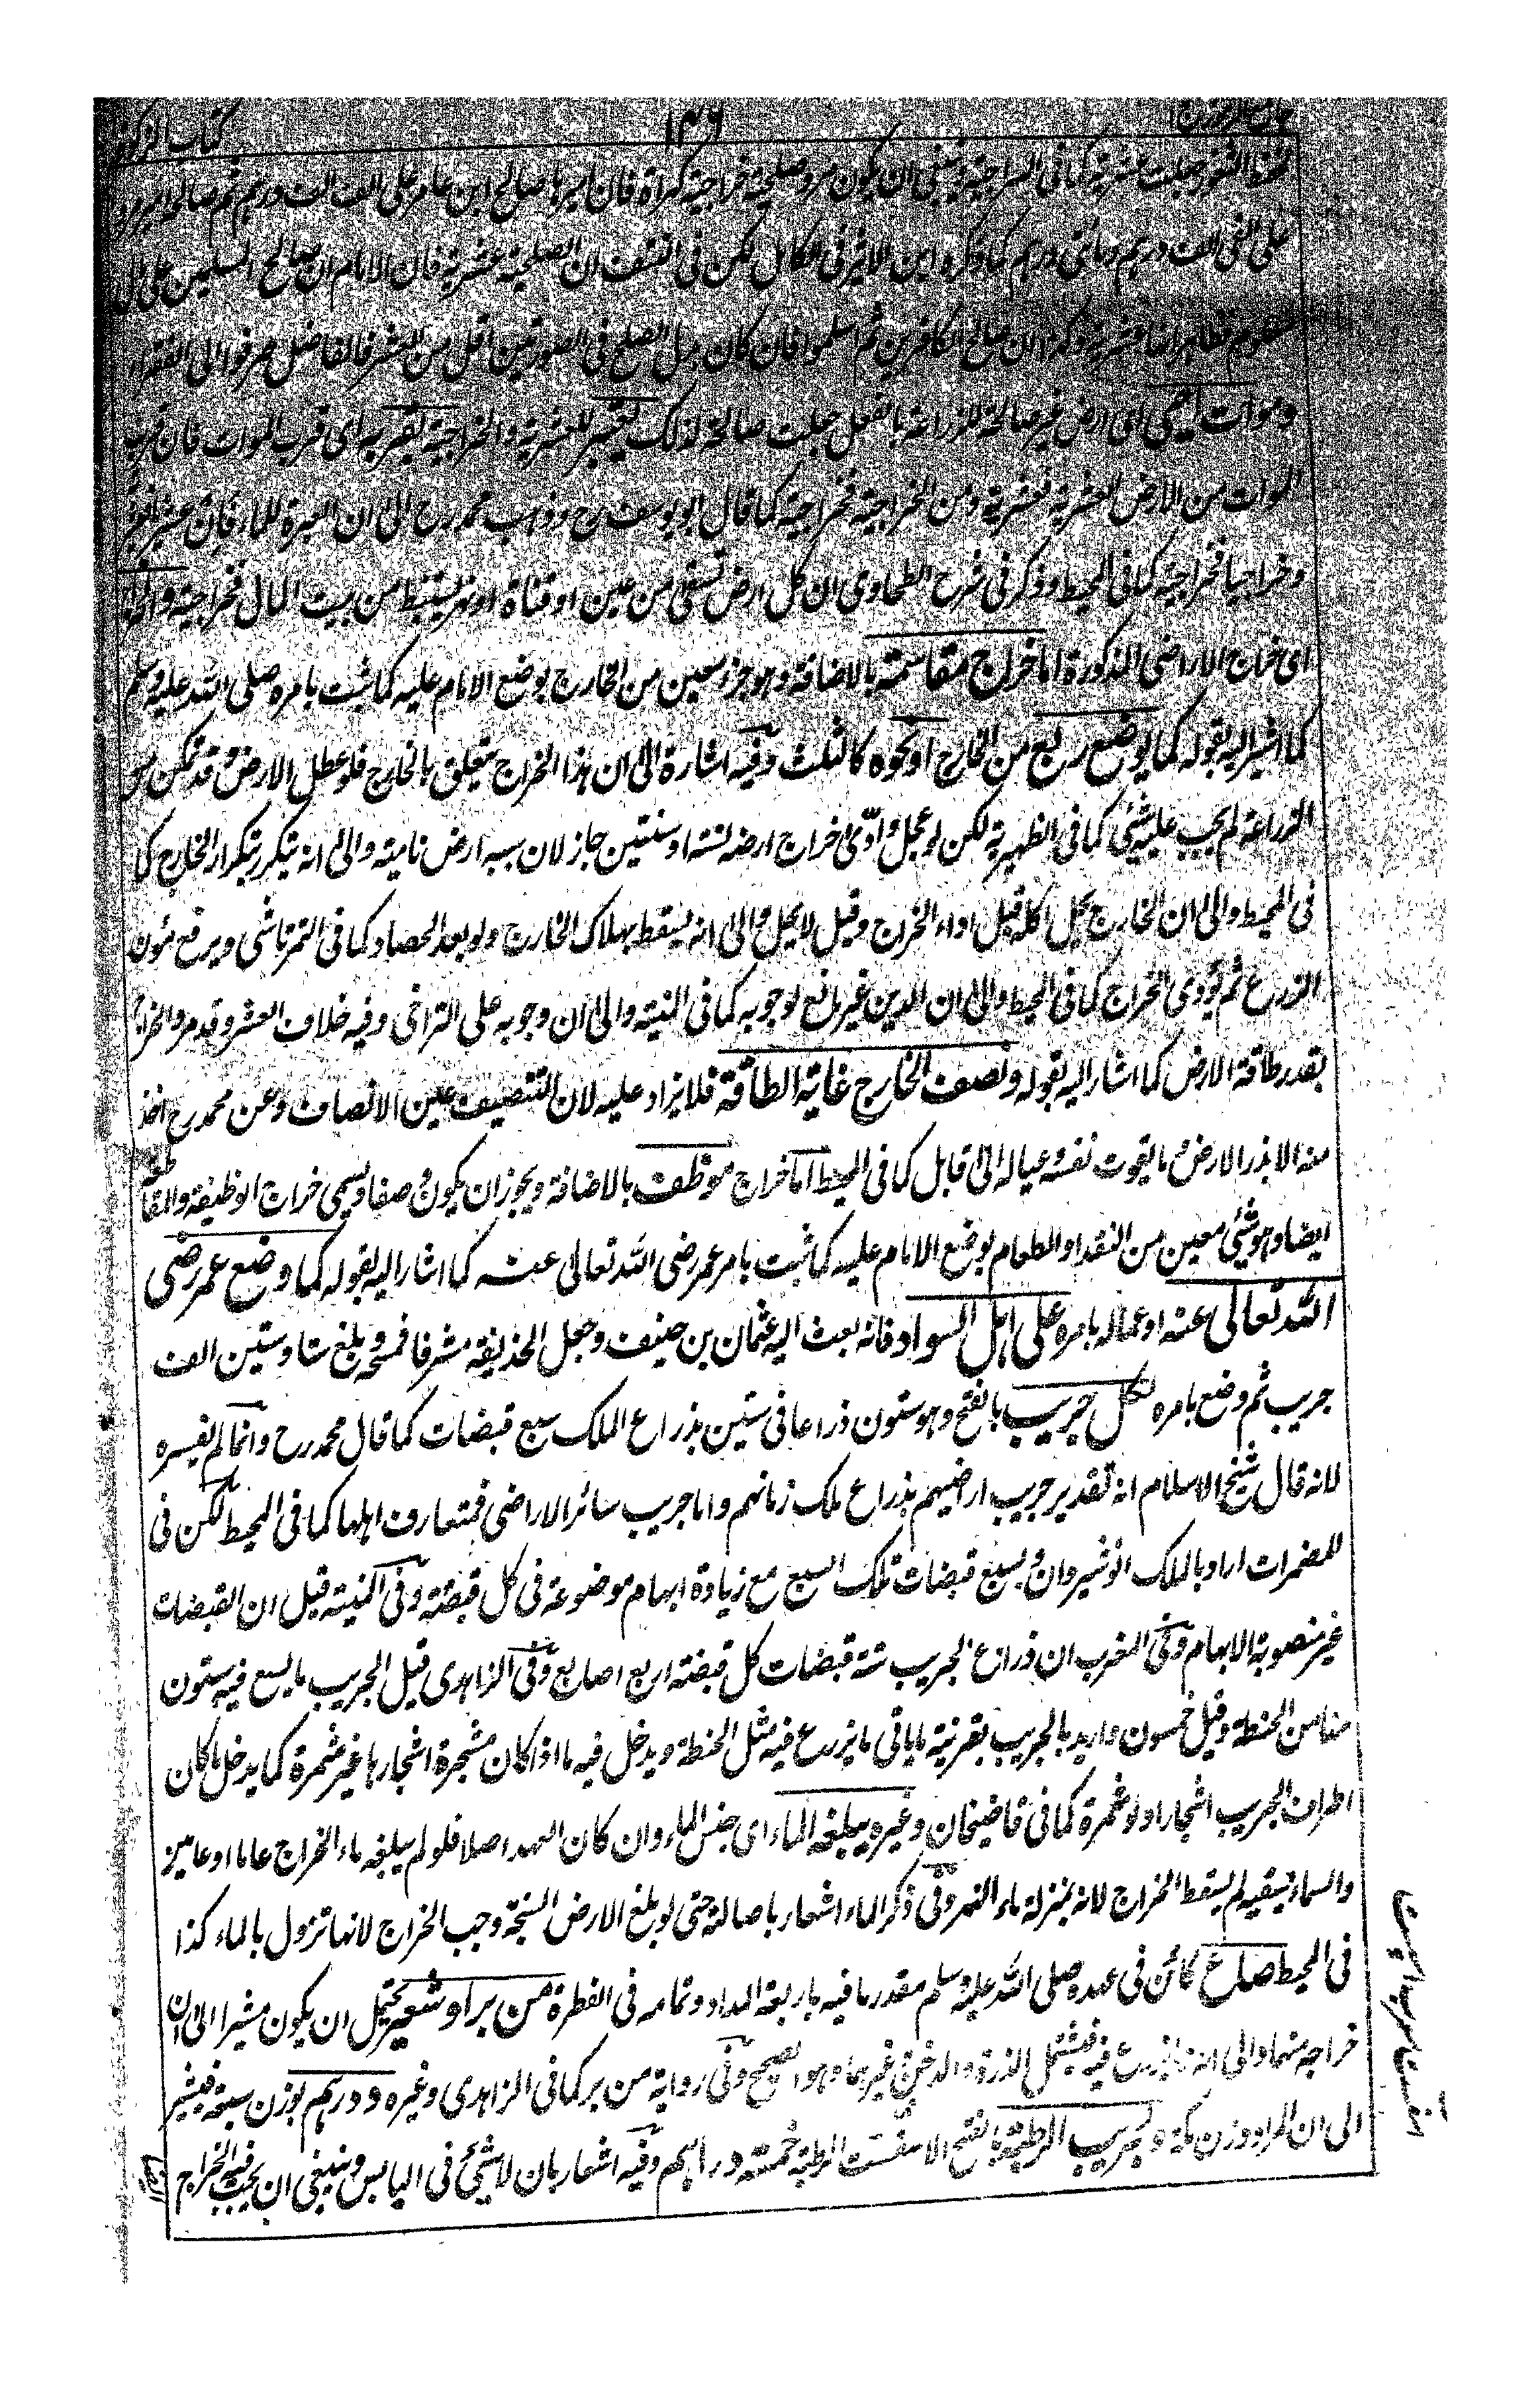 كتاب الزكوة
١٤٦
جامع الرموز
جعلت عشرية كما فى السراجية وينبغى ان يكون مرو صلحية خراجية كهراة فان اميرها صالح ابن عامر على الف الف درهم ثم صالحه امير مرو
على الفى الف درهم ومائتى درهم كما ذكره ابن الاثير فى الكامل لكن فى النتف ان الصلحية عشرية فان الامام ان صالح المسلمين على مال
معلوم فظاهر انها عشرية وكذا ان صالح الكافرين ثم اسلموا فان كان مال الصلح فى الصورتين اقل من العشر فالفاضل صرفوا الى الفقراء
وموات احيى اى ارض غير صالحة للزراعة بالفعل جعلت صالحة لذلك يعتبر للعشرية والخراجية بقربه اى قرب الموات فان قرب
الموات من الارض العشرية فعشرية ومن الخراجية فخراجية كما قال ابو يوسف رح وذهب محمد رح الى ان العبرة للماء فان عشريا فعشرية
وخراجيا فخراجية كما فى المحيط وذكر فى شرح الطحاوى ان كل ارض تسقى من عين او قناة او نهر يستنبط من بيت المال فخراجية والخراج
اى خراج الاراضى المذكورة اما خراج مقاسمة بالاضافة وهو جزء معين من الخارج يوضع الامام عليه كما ثبت بامره صلى الله عليه وسلم
كما اشير اليه بقوله كما يوضع ربع من الخارج او نحوه كالثلث وفيه اشارة الى ان هذا الخراج متعلق بالخارج فلو عطل الارض وقد تمكن من
الزراعة لم يجب عليه شئ كما فى الظهيرية لكن لو عجل وادى خراج ارضه لسنة او سنتين جاز لان سببه ارض نامية والى انه يتكرر بتكرار الخارج كما
فى المحيط والى ان الخارج يحل اكله قبل اداء الخراج وقيل لا يحل والى انه يسقط بهلاك الخارج ولو بعد الحصاد كما فى التمرتاشى ويرفع مئون
الزرع ثم يؤدى الخراج كما فى المحيط والى ان الدين غير مانع لوجوبه كما فى المنية والى ان وجوبه على التراخى وفيه خلاف العشر وقد مر والخراج
بقدر طاقة الارض كما اشار اليه بقوله ونصف الخارج غاية الطاقة فلا يزاد عليه لان التنصيف عين الانصاف وعن محمد رح اخذ
منه الا بذر الارض وما يقوت نفسه وعياله الى قابل كما فى المحيط اما خراج موظف بالاضافة ويجوز ان يكون وصفا ويسمى خراج الوظيفة والمقاطعة
ايضا وهو شئ معين من النقد او الطعام يوضع الامام عليه كما ثبت بامر عمر رضى الله تعالى عنه كما اشار اليه بقوله كما وضع عمر رضى
الله تعالى عنه او عماله بامره على اهل السواد فانه بعث اليه عثمان بن حنيف وجعل الحذيفة مشرفا فمسح وبلغ ستا وستين الف
جريب ثم وضع بامره لكل جريب بالفتح وهو ستون ذراعا فى ستين بذراع الملك سبع قبضات كما قال محمد رح وانما لم يفسره
لانه قال شيخ الاسلام انه تقدير جريب اراضيهم بذراع ملك زمانهم واما جريب سائر الاراضى فمتعارف اهلها كما فى المحيط لكن فى
المضمرات اراد بالملك انوشيروان وبسبع قبضات تلك السبع مع زيادة ابهام موضوعة فى كل قبضة وفى المنية قيل ان القبضات
غير منصوبة الابهام وفى المغرب ان ذراع الجريب ستة قبضات كل قبضة اربع اصابع وفى الزاهدى قيل الجريب ما يسع فيه ستون
منا من الحنطة وقيل خمسون واريد بالجريب بقرينة ما ياتى ما يزرع فيه مثل الحنطة ويدخل فيه ما اذا كان مشجرة اشجارها غير مثمرة كما يدخل ما كان
اطراف الجريب اشجارا ولو مثمرة كما فى قاضيخان وغيره يبلغه الماء اى جنس الماء وان كان العهد اصلا فلو لم يبلغه ماء الخراج عاما او عامين
والسماء تسقيه لم يسقط الخراج لانه بمنزلة ماء النهر وفى ذكر الماء اشعار باصالة حتى لو بلغ الارض السبخة وجب الخراج لانها تزول بالماء كذا
فى المحيط صاع كائن فى عهده صلى الله عليه وسلم مقدر ما فيه باربعة امداد وتمامه فى الفطرة من بر او شعير يحتمل ان يكون مشيرا الى ان
خراجه منهما والى انه مما يزرع فيه فيشمل الذرة والدخن وغيرهما وهو الصحيح وفى رواية من بر كما فى الزاهدى وغيره ودرهم بوزن سبعة فيشير
الى ان المراد وزن مكة ولجريب الرطبة بالفتح الاسفست الرطبة خمسة دراهم وفيه اشعار بان لا شئ فى اليابس وينبغى ان يجب فيه الخراج